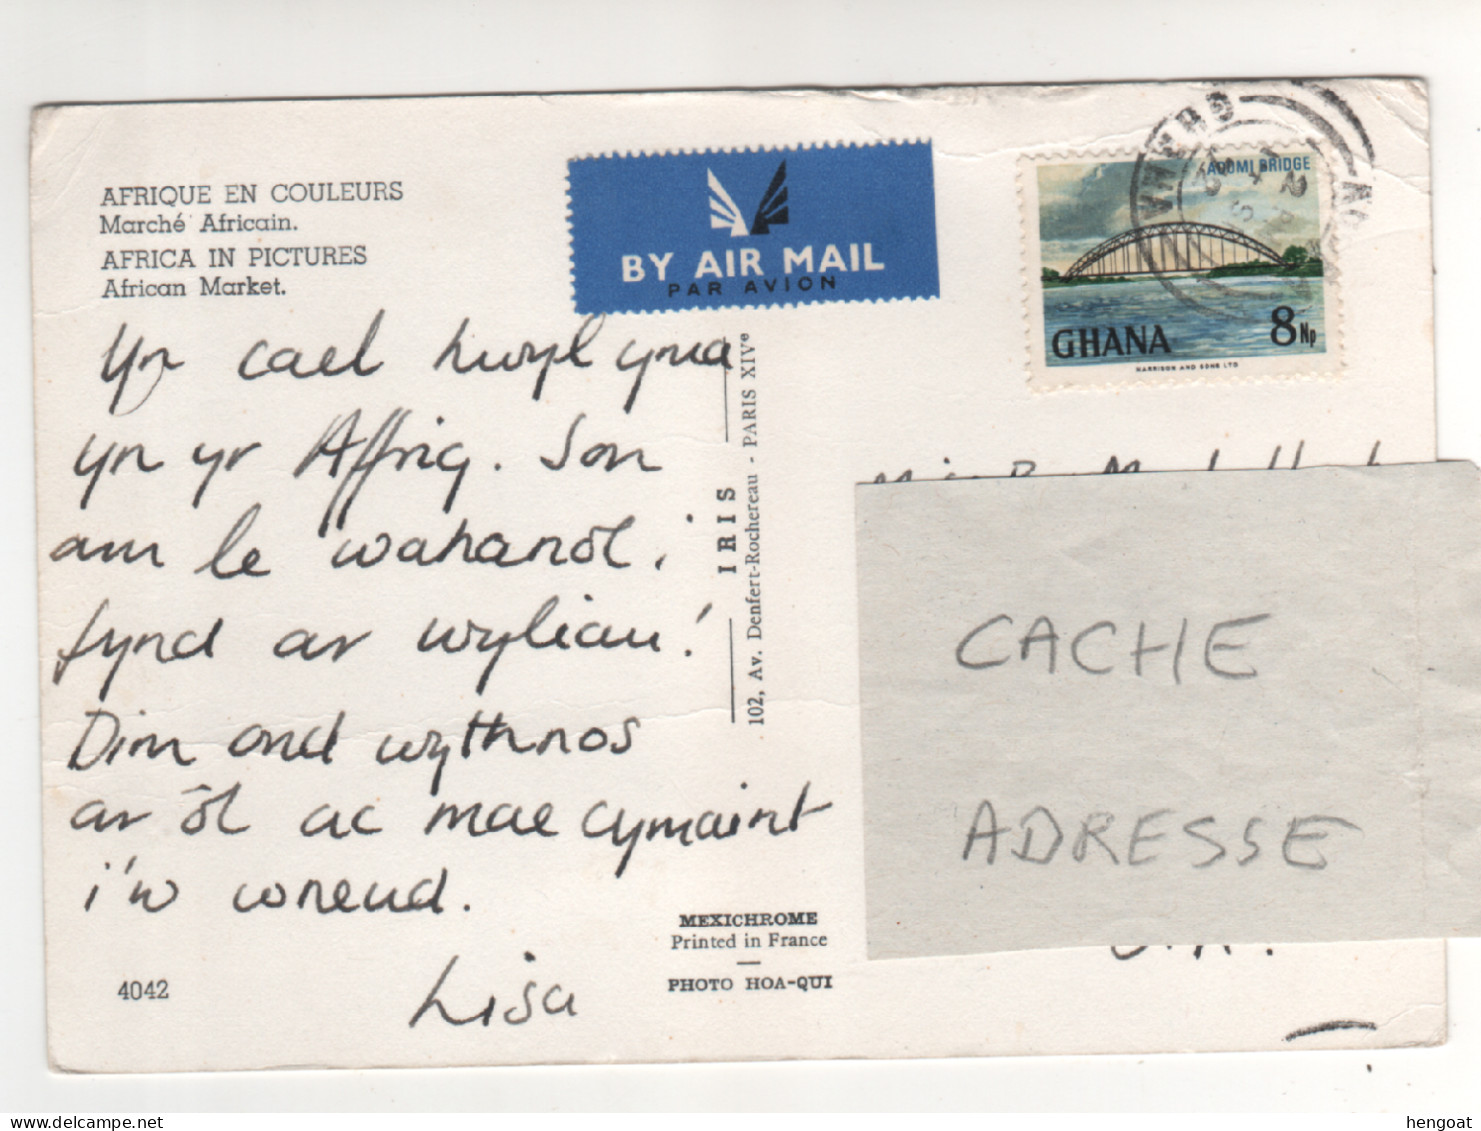 AFRIQUE EN COULEURS
Marché Africain.
AFRICA IN PICTURES
African Market.
BY AIR MAIL
PAR AVION
ADOMI BRIDGE
GHANA 8 Np
HARRISON AND SONS LTD
Yn cael hwyl yma
yn yr Affrig. Son
am le wahanôl i
fynd ar wyliau!
Dim ond wythnos
ar ôl ac mae cymaint
i'w wneud.
Lisa
IRIS
102, Av. Denfert-Rochereau - PARIS XIVe
CACHE
ADRESSE
MEXICHROME
Printed in France
PHOTO HOA-QUI
4042
hengoat